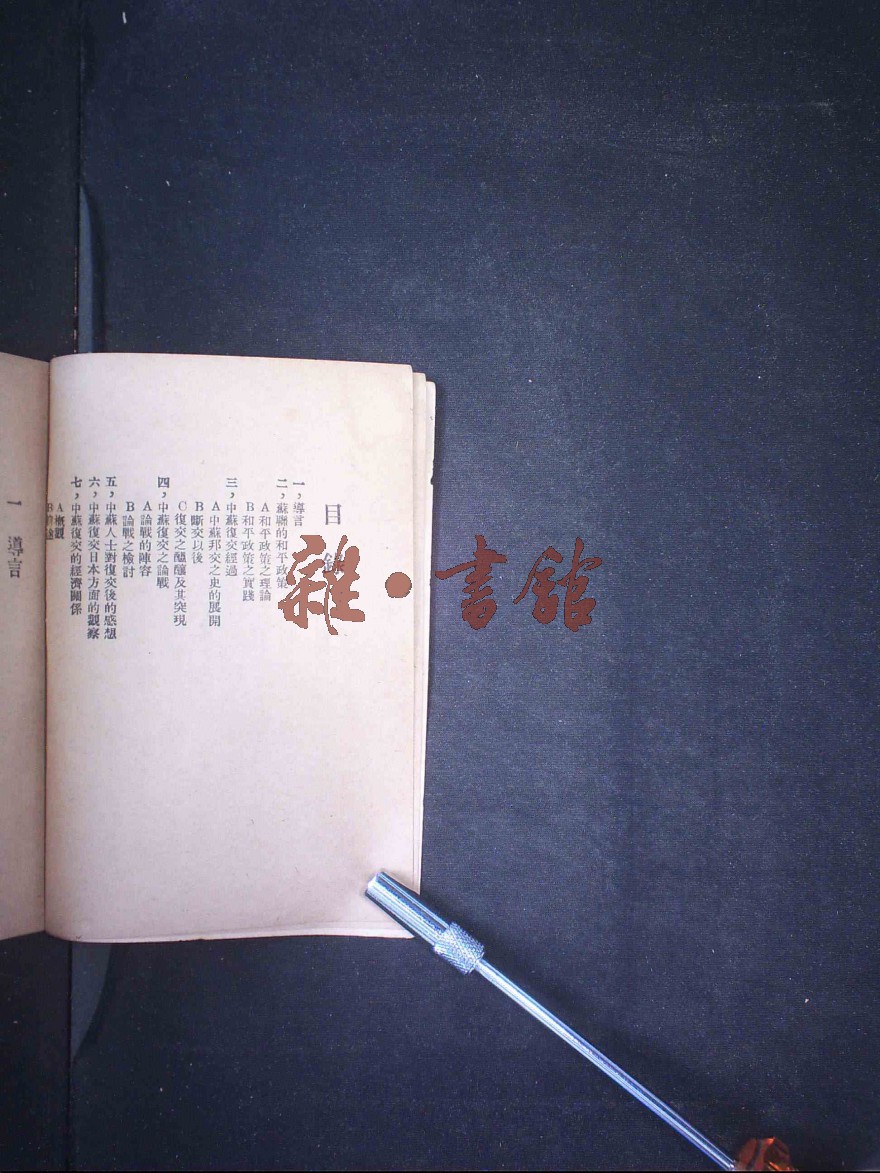 目錄
一，導言
二，蘇聯的和平政策
A和平政策之理論
B和平政策之實踐
三，中蘇復交經過
A中蘇邦交之史的展開
B斷交以後
C復交之醞釀及其突現
四，中蘇復交之論戰
A論戰的陣容
B論戰之檢討
五，中蘇人士對復交後的感想
六，中蘇復交日本方面的觀察
七，中蘇復交的經濟關係
A概觀
B
一 導言
雜·書館